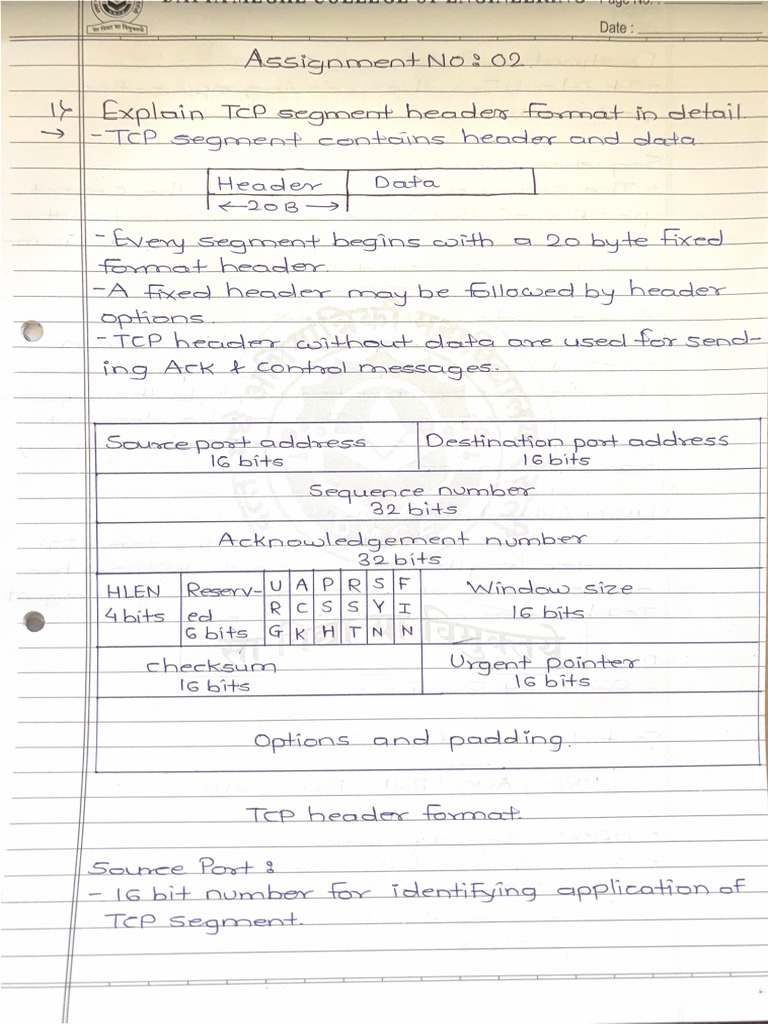 COLLEGE OF ENGINEERING
Page No. :
Date :
Assignment No : 02
1) Explain TCP segment header format in detail.
→ - TCP segment contains header and data.
Header Data
←20B→
- Every segment begins with a 20 byte fixed
format header.
- A fixed header may be followed by header
options.
- TCP header without data are used for send-
ing Ack & control messages.
Source port address Destination port address
16 bits 16 bits
Sequence number
32 bits
Acknowledgement number
32 bits
HLEN Reserv- U A P R S F Window size
4 bits ed R C S S Y I 16 bits
6 bits G K H T N N
Checksum Urgent pointer
16 bits 16 bits
Options and padding.
TCP header format.
Source Port :
- 16 bit number for identifying application of
TCP segment.